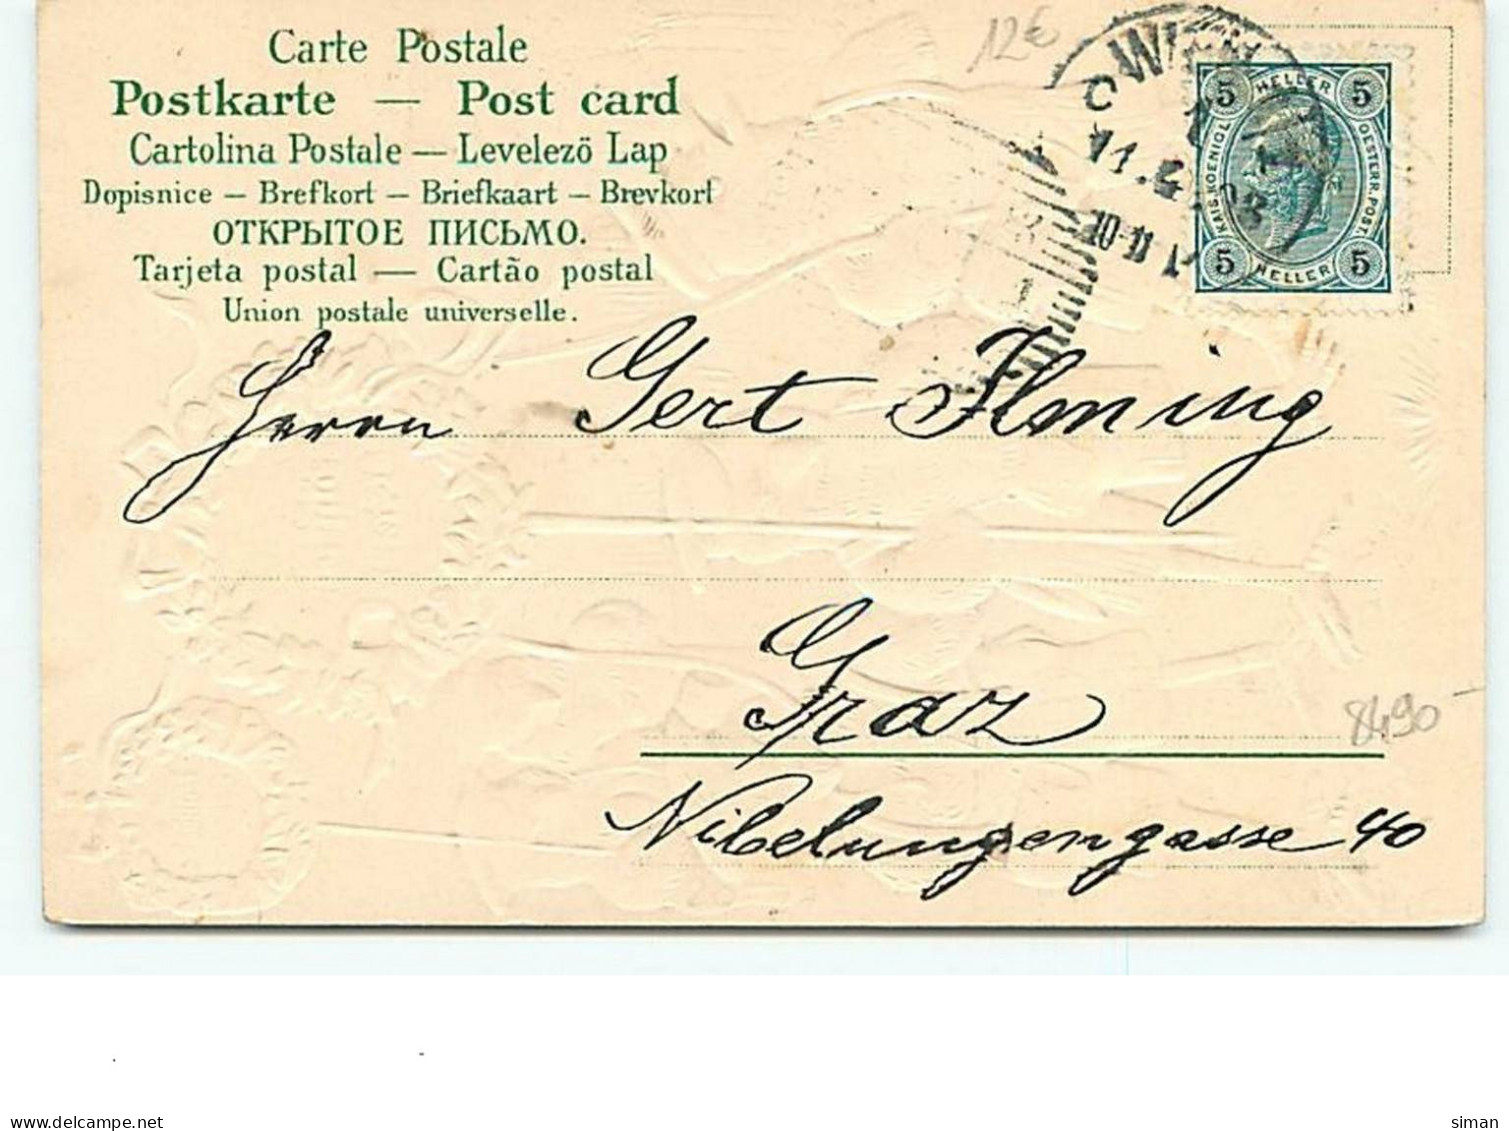 12€
Carte Postale
Postkarte — Post card
Cartolina Postale — Levelezö Lap
Dopisnice – Brefkort – Briefkaart – Brevkort
ОТКРЫТОЕ ПИСЬМО.
Tarjeta postal — Cartão postal
Union postale universelle.
WIEN
11.4.03
10-11
5 HELLER 5
KAIS. KOENIGL.
OESTERR. POST.
5 HELLER 5
Herrn Gert Ilming
Graz
8490
Nibelungengasse 40
www.delcampe.net
siman